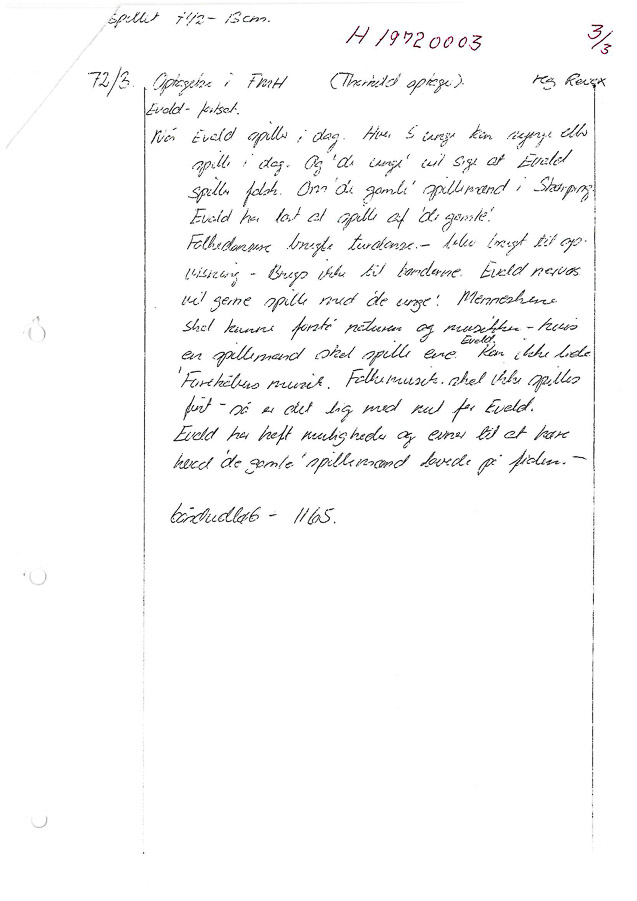 spillet 7 1/2 - 13 cm.
H 19720003
3/3
72/3. Optagelse i FMH (Thorkild optager). reg Revox
Evald - fortsat.
Når Evald spiller i dag. Hver 5 unge kan synge eller
spille i dag. Og 'de unge' vil sige at Evald
spiller falsk. Om 'de gamle' spillemænd i Skørping.
Evald har lært at spille af 'de gamle'.
Folkedansere brugte turdanse. - blev brugt til op-
visning - Brugs ikke til bønderne. Evald
vil gerne spille med 'de unge'. Menneskene
skal kunne forstå naturen og musikken - hvis
en spillemand skal spille ene. Evald kan ikke lide
'Farekålens musik. Folkemusik skal ikke spilles
fint - så er det lig med nul for Evald.
Evald har haft muligheder og evner til at høre
hvad 'de gamle' spillemænd lavede på fiolen. -
båndudløb - 1165.